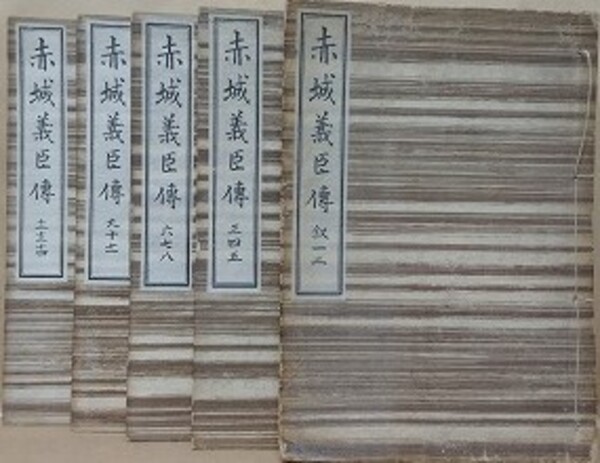 赤城義臣傳 叙一二
赤城義臣傳 三四五
赤城義臣傳 六七八
赤城義臣傳 九十十一
赤城義臣傳